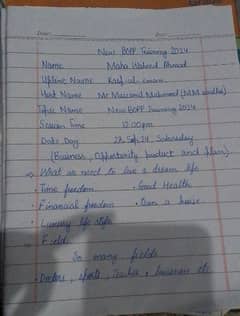 New BOPP Training 2024
Name Maha Waheed Ahmad
Upline Name Kashif ul
Host Name Mr Muzamil Mahmood (MM
Topic Name New BOPP Training 2024
Session Time 12:00pm
Date Day 28 Sep 24, Saturday
(Business, Opportunity product and plan)
What we need to live a dream life
• Time freedom • Good Health
• Financial freedom • Own a house
• Luxury life style
• Field
So many fields
• Doctors, sports, Teacher, business etc